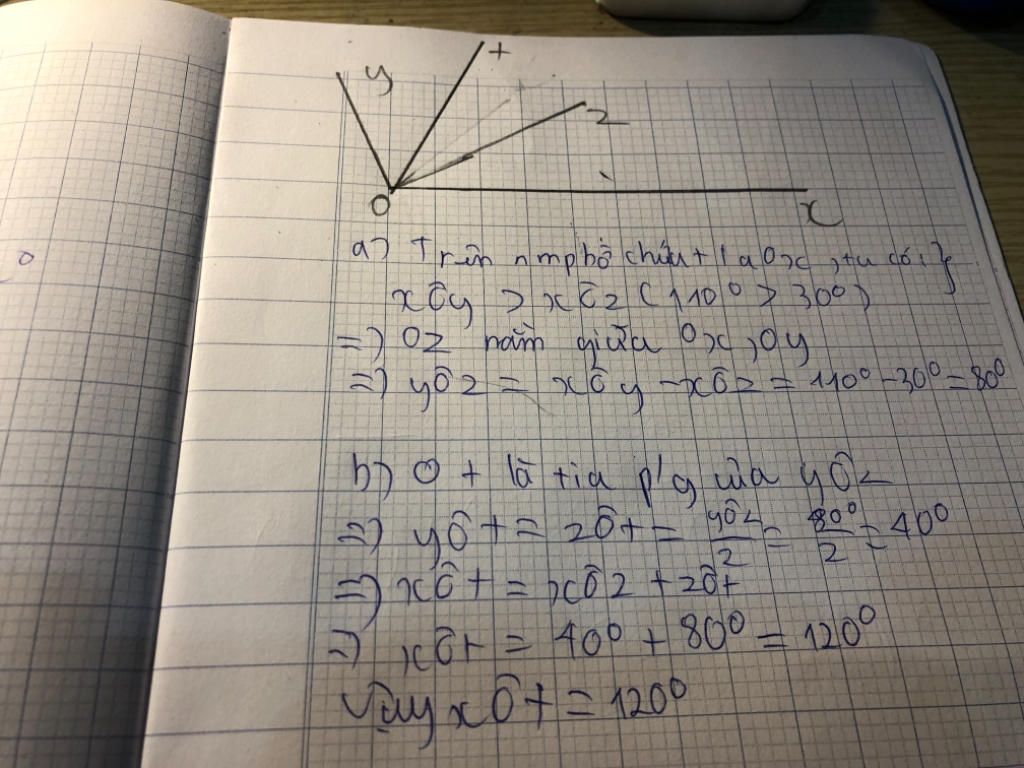 y
t
z
O
x
a) Trên n mp bờ chứa tia Ox, ta có: }
xÔy > xÔz (110° > 30°)
=) Oz nằm giữa Ox, Oy
=) yÔz = xÔy - xÔz = 110° - 30° = 80°
b) Ot là tia p/g của yÔz
=) yÔt = zÔt = yÔz/2 = 80°/2 = 40°
=) xÔt = xÔz + zÔt
=) xÔt = 40° + 80° = 120°
Vậy xÔt = 120°